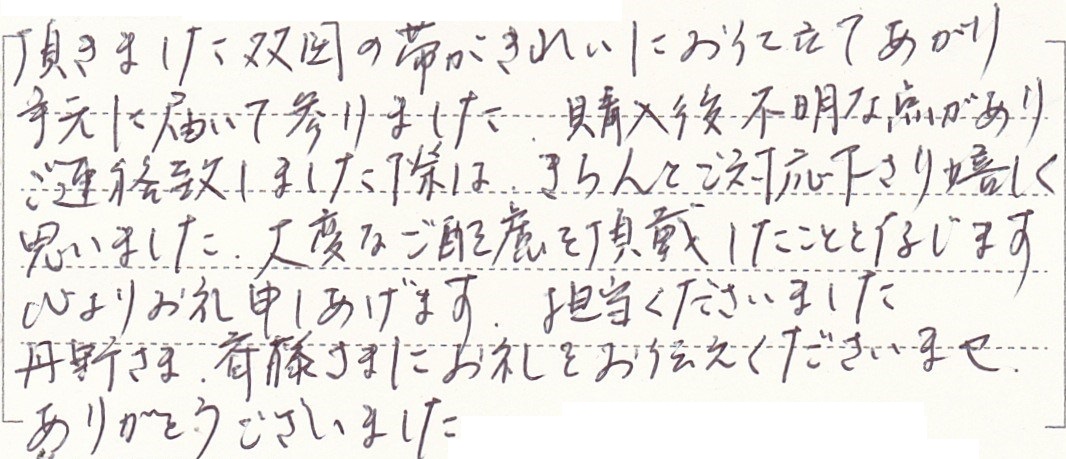 頂きました双図の帯がきれいにお仕立てあがり
手元に届いて参りました。購入後不明な点があり
ご連絡致しました際は、きちんとご対応下さり嬉しく
思いました。大変なご配慮を頂戴したことと存じます
心よりお礼申しあげます。担当くださいました
丹野さま、斉藤さまにお礼をお伝えくださいませ。
ありがとうございました